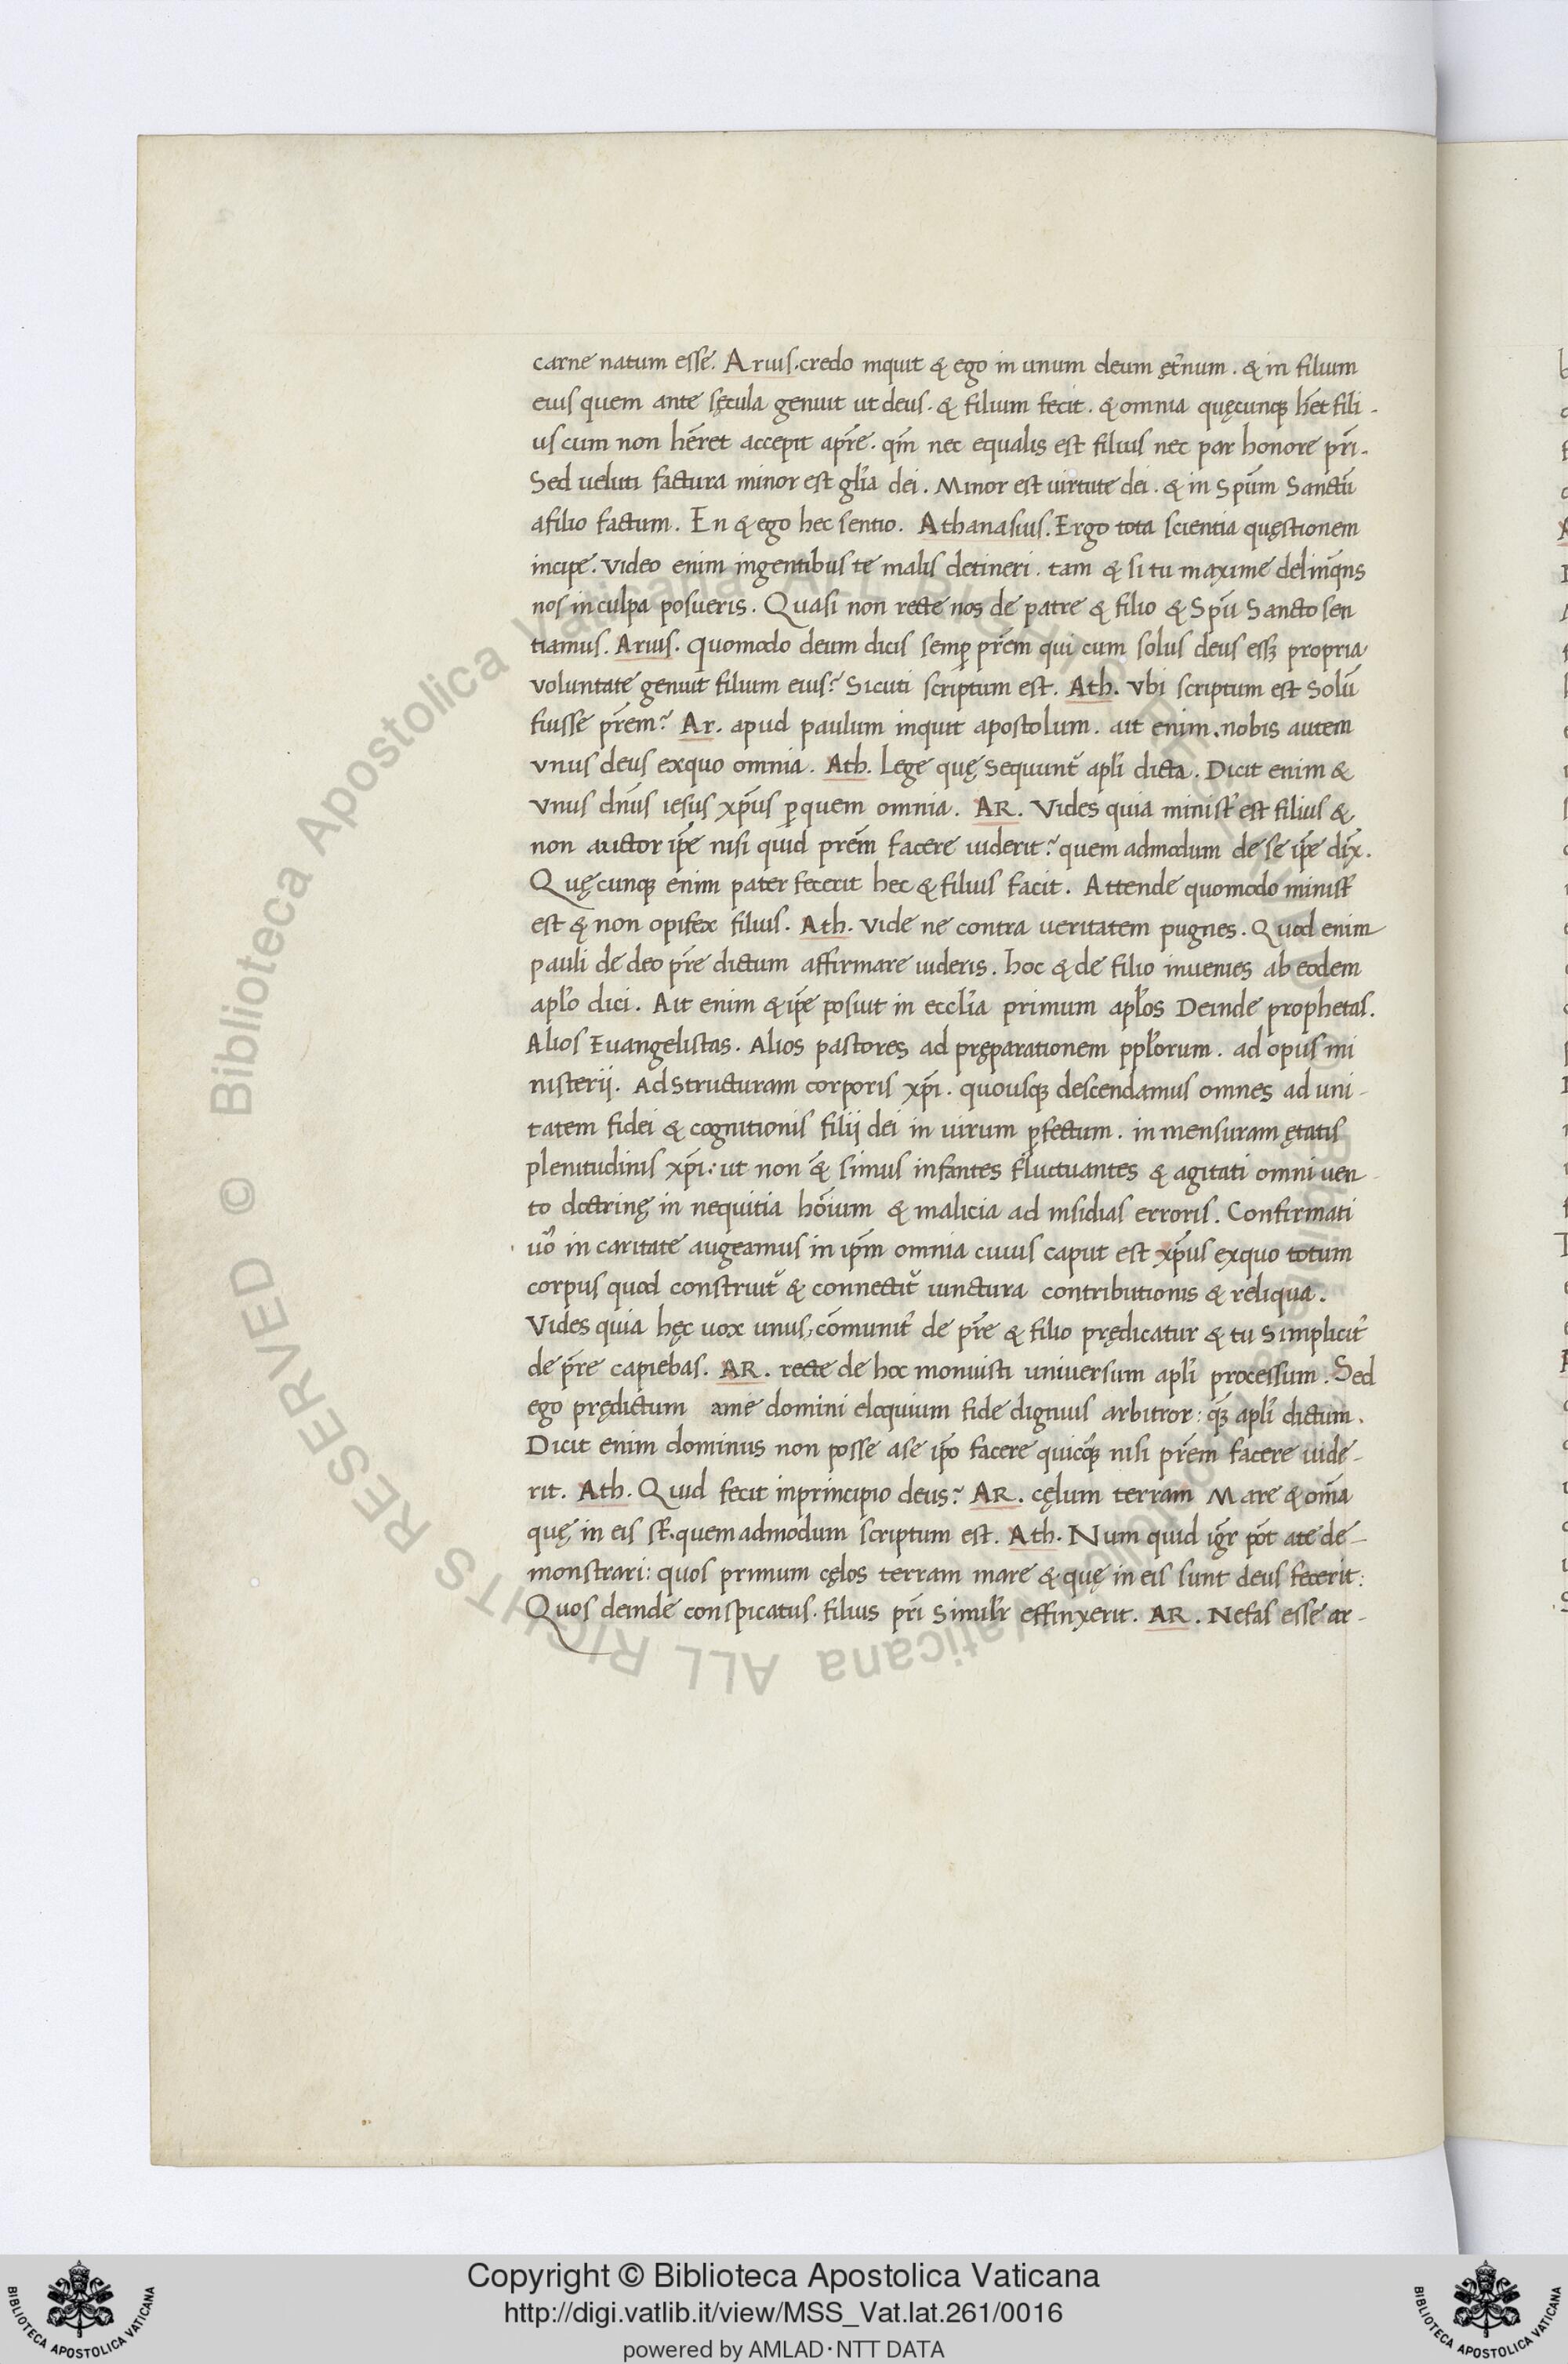 carne natum esse. Arius. credo inquit & ego in unum deum ęt̃num. & in filium
eius quem ante sęcula genuit ut deus. & filium fecit. & omnia quęcunqꝫ hẽt fili-
us cum non hẽret accepit aprẽ. qm̃ nec equalis est filius nec par honore pr̃i.
Sed ueluti factura minor est gl̃ia dei. Minor est uirtute dei. & in Spũm Sanctũ
afilio factum. En & ego hec sentio. Athanasius. Ergo tota scientia quęstionem
incipe. Video enim ingentibus te malis detineri. tam & si tu maxime delinq̃ns
nos in culpa posueris. Quasi non recte nos de patre & filio & Spũ Sancto sen
tiamus. Arius. Quomodo deum dicis semp̱ pr̃em qui cum solus deus essꝫ propria
voluntate genuit filium eius? Sicuti scriptum est. Ath. Vbi scriptum est Solũ
fuisse pr̃em? Ar. apud paulum inquit apostolum. ait enim. nobis autem
vnus deus exquo omnia. Ath. Lege quę Sequunt̃ apl̃i dicta. Dicit enim &
Vnus dñus iesus xp̃us ꝑquem omnia. AR. Vides quia minist̃ est filius &
non auctor ip̃e nisi quid prẽm facere uiderit? quem admodum de se ip̃e dix̃.
Quęcunqꝫ enim pater fecerit hec & filius facit. Attende quomodo minist̃
est & non opifex filius. Ath. Vide ne contra ueritatem pugnes. Quod enim
pauli de deo pr̃e dictum affirmare uideris. hoc & de filio inuenies ab eodem
apl̃o dici. Ait enim & ip̃e posuit in eccl̃ia primum apl̃os Deinde prophetas.
Alios Euangelistas. Alios pastores ad pręparationem ppl̃orum. ad opus mi
nisterij. Ad Structuram corporis xp̃i. quousqꝫ descendamus omnes ad uni-
tatem fidei & cognitionis filij dei in uirum ꝑfectum. in mensuram ętatis
plenitudinis xp̃i: ut non simus infantes fluctuantes & agitati omni uen
to doctrinę in nequitia hõium & malicia ad insidias erroris. Confirmati
uo᷒ in caritate augeamus in ip̃m omnia cuius caput est xp̃us exquo totum
corpus quod construit̃ & connectit̃ iunctura contributionis & reliqua.
Vides quia hęc uox unus, cõmunit̃ de pr̃e & filio prędicatur & tu Simplicit̃
de pr̃e capiebas. AR. recte de hoc monuisti uniuersum apl̃i processum. Sed
ego prędictum ame domini eloquium fide dignius arbitror: q̃ꝫ apl̃i dictum.
Dicit enim dominus non posse ase ip̃o facere quicq̃ꝫ nisi pr̃em facere uide-
rit. Ath. Quid fecit inprincipio deus? AR. cęlum terram Mare & om̃a
quę in eis st̃. quem admodum scriptum est. Ath. Num quid igr̃ põt ate de-
monstrari: quos primum cęlos terram mare & quę in eis sunt deus fecerit:
Quos deinde conspicatus. filius pr̃i Simil̃r effinxerit. AR. Nefas esse ar-
© Biblioteca Apostolica Vaticana ALL RIGHTS RESERVED
Copyright © Biblioteca Apostolica Vaticana
http://digi.vatlib.it/view/MSS_Vat.lat.261/0016
powered by AMLAD·NTT DATA
BIBLIOTECA APOSTOLICA VATICANA
BIBLIOTECA APOSTOLICA VATICANA